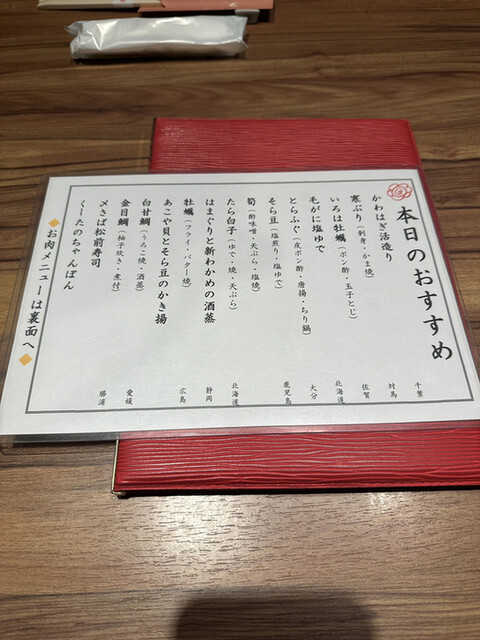 本日のおすすめ
かわはぎ活造り 千葉
寒ぶり（刺身・かま焼） 対馬
いろは牡蠣（ポン酢・玉子とじ） 佐賀
毛がに塩ゆで 北海道
とらふぐ（皮ポン酢・唐揚・ちり鍋） 大分
そら豆（塩煎り・塩ゆで） 鹿児島
筍（酢味噌・天ぷら・塩焼）
たら白子（ゆで・焼・天ぷら） 北海道
はまぐりと新わかめの酒蒸 静岡
牡蠣（フライ・バター焼） 広島
あこや貝とそら豆のかき揚
白甘鯛（うろこ焼・酒蒸） 愛媛
金目鯛（柚子炊き・煮付） 勝浦
〆さば松前寿司
くーたのちゃんぽん
お肉メニューは裏面へ